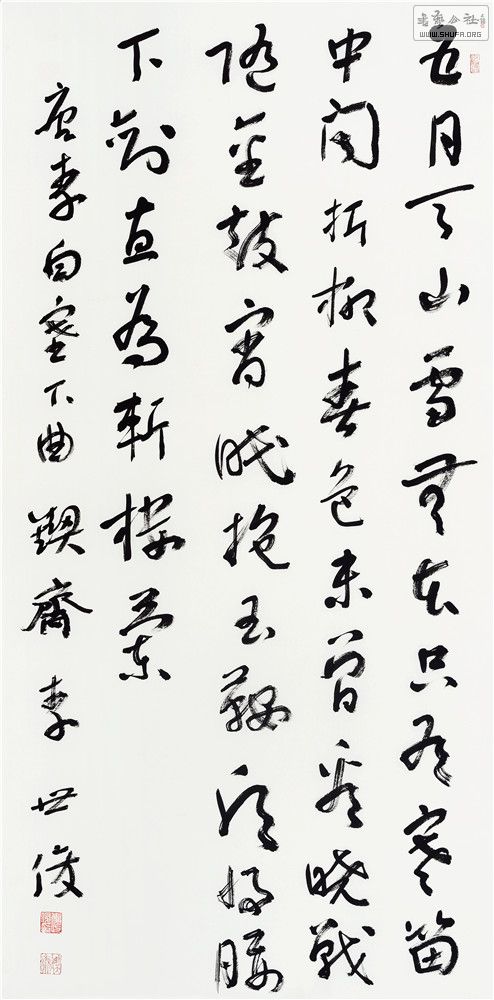 五月天山雪無花只有寒笛
中聞折柳春色未曾看曉戰
隨金鼓宵眠抱玉鞍願將腰
下劍直為斬樓蘭
唐李白塞下曲 鍥齋 李世俊
WWW.SHUFA.ORG